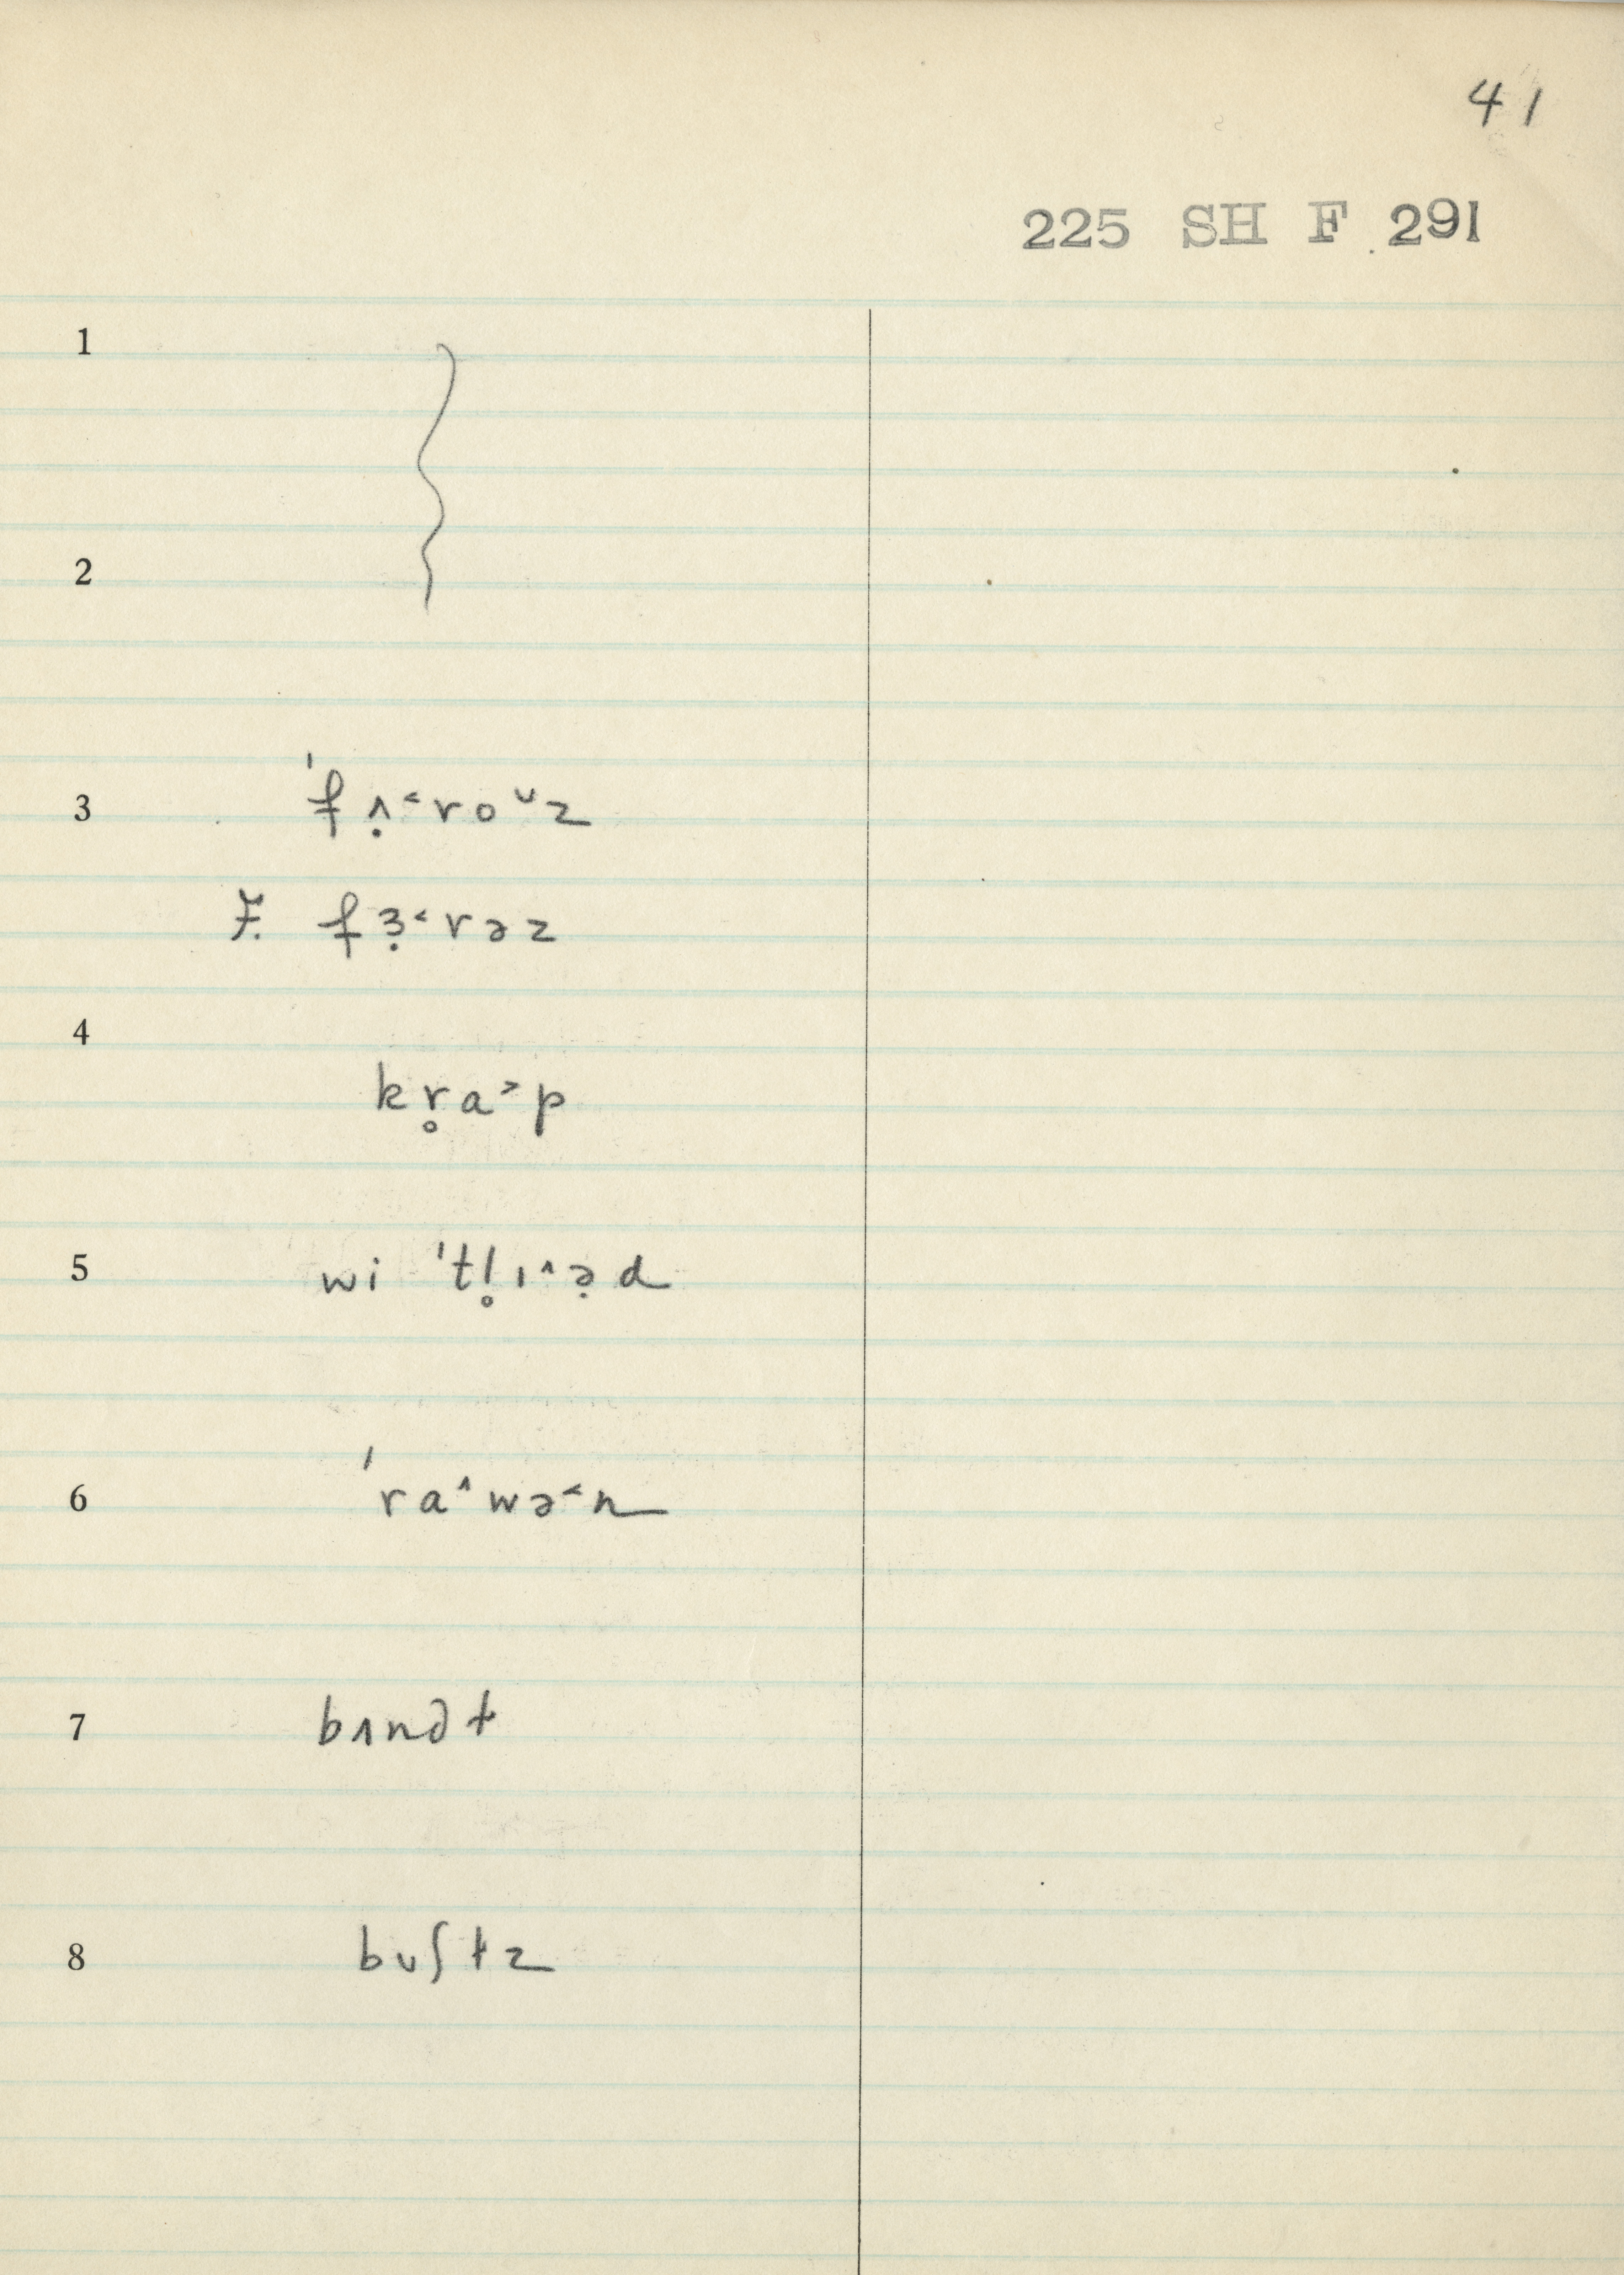 41
225 SH F 291
1
2
3 ˈfʌ̣˂roᴗz
F. fɜ̣˂rəz
4
kr̥a˃p
5 wi ˈtl̥ɪ˄ə̣d
6 ˈra˄wə˂n
7 bʌndɫ
8 bʊʃɫz